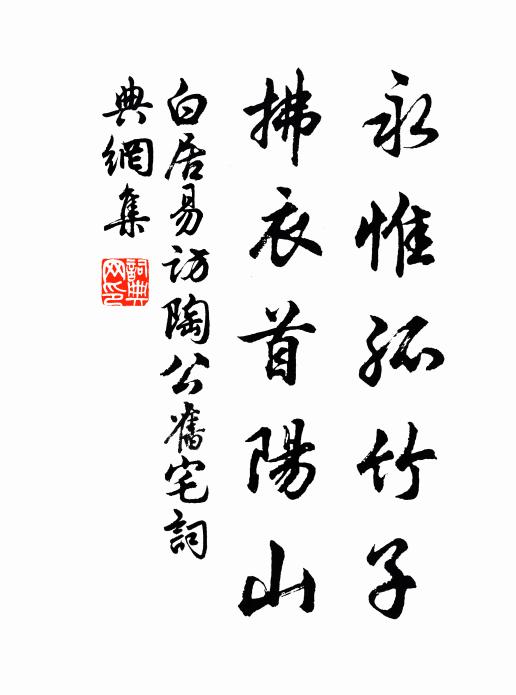 永惟孤竹子
拂衣首陽山
白居易訪陶公舊宅詞
典網集
詞典網印